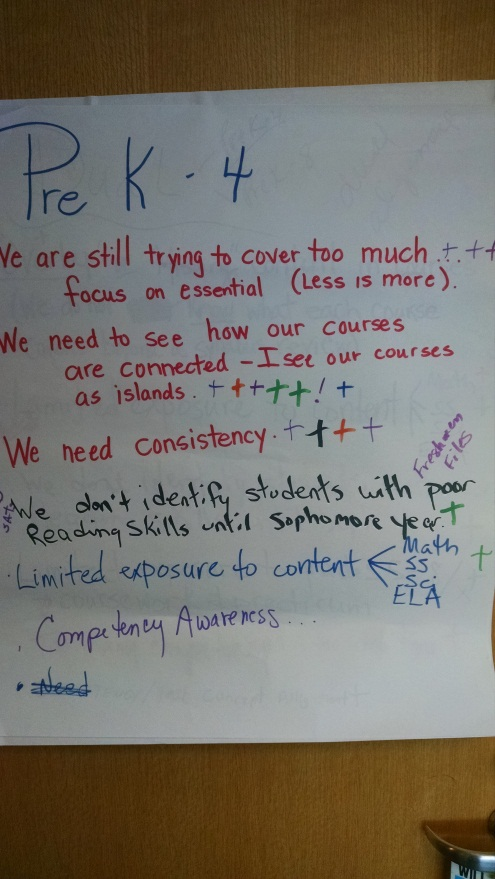 Pre K - 4
We are still trying to cover too much . + . + +
focus on essential (Less is more).
We need to see how our courses
are connected - I see our courses
as islands. + + + + + ! +
We need consistency. + + + +
Freshmen
Files
We don't identify students with poor
Reading Skills until Sophomore year. +
· Limited exposure to content < Math +
SS
Sci
ELA
. Competency Awareness...
• Need
WILL